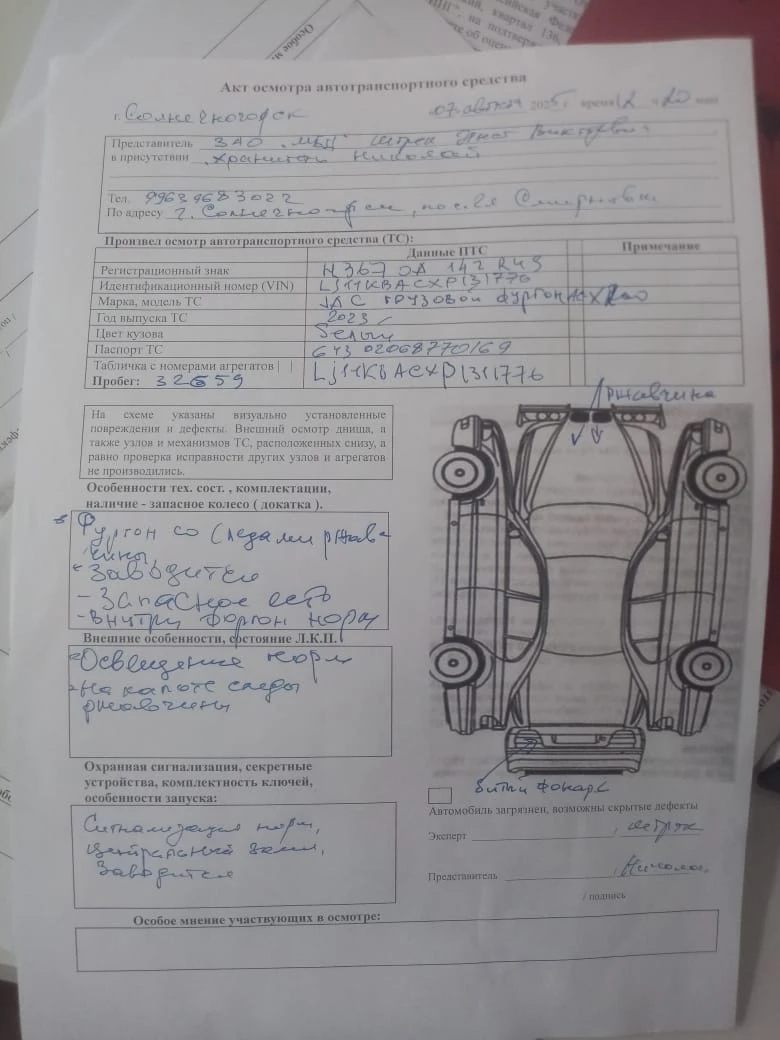 Акт осмотра автотранспортного средства
г. Солнечногорск
07 августа 2025 г. время 12 ч 20 мин
Представитель ЗАО "МБЦ" Викторович
в присутствии хранитель Николай
Тел. 89639683022
По адресу г. Солнечногорск, посёлок Смирновка
Произвел осмотр автотранспортного средства (ТС):
Данные ПТС
Примечание
Регистрационный знак Н367 ОА 142 RUS
Идентификационный номер (VIN) LJ11KBACXP1311776
Марка, модель ТС JAC грузовой фургон
Год выпуска ТС 2023
Цвет кузова Белый
Паспорт ТС
Табличка с номерами агрегатов | | LJ11KBACXP1311776
Пробег: 32659
Ржавчина
На схеме указаны визуально установленные
повреждения и дефекты. Внешний осмотр днища, а
также узлов и механизмов ТС, расположенных снизу, а
равно проверка исправности других узлов и агрегатов
не производились.
Особенности тех. сост. , комплектации,
наличие - запасное колесо ( докатка ).
Фургон со следами ржав-
чины
Заводится
- Запасное есть
- Внутри фургон норм
Внешние особенности, состояние Л.К.П.
Освещение норм
На капоте следы
ржавчины
Охранная сигнализация, секретные
устройства, комплектность ключей,
особенности запуска:
Сигнализация норм,
центральный замок,
Заводится
битый фонарь
Автомобиль загрязнен, возможны скрытые дефекты
Эксперт
Представитель
/ подпись
Особое мнение участвующих в осмотре: